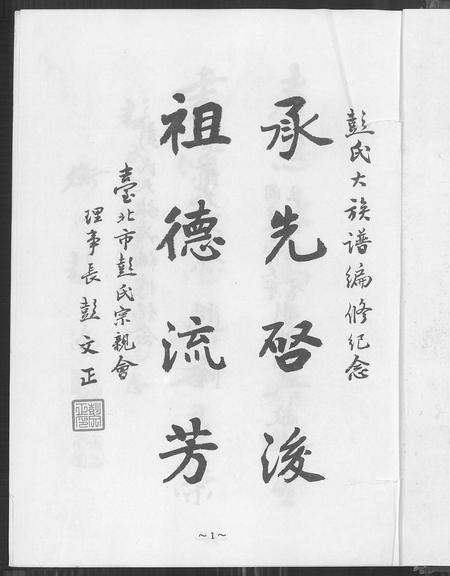 彭氏大族譜編修紀念
承先啓後
祖德流芳
臺北市彭氏宗親會
理事長彭文正
~1~